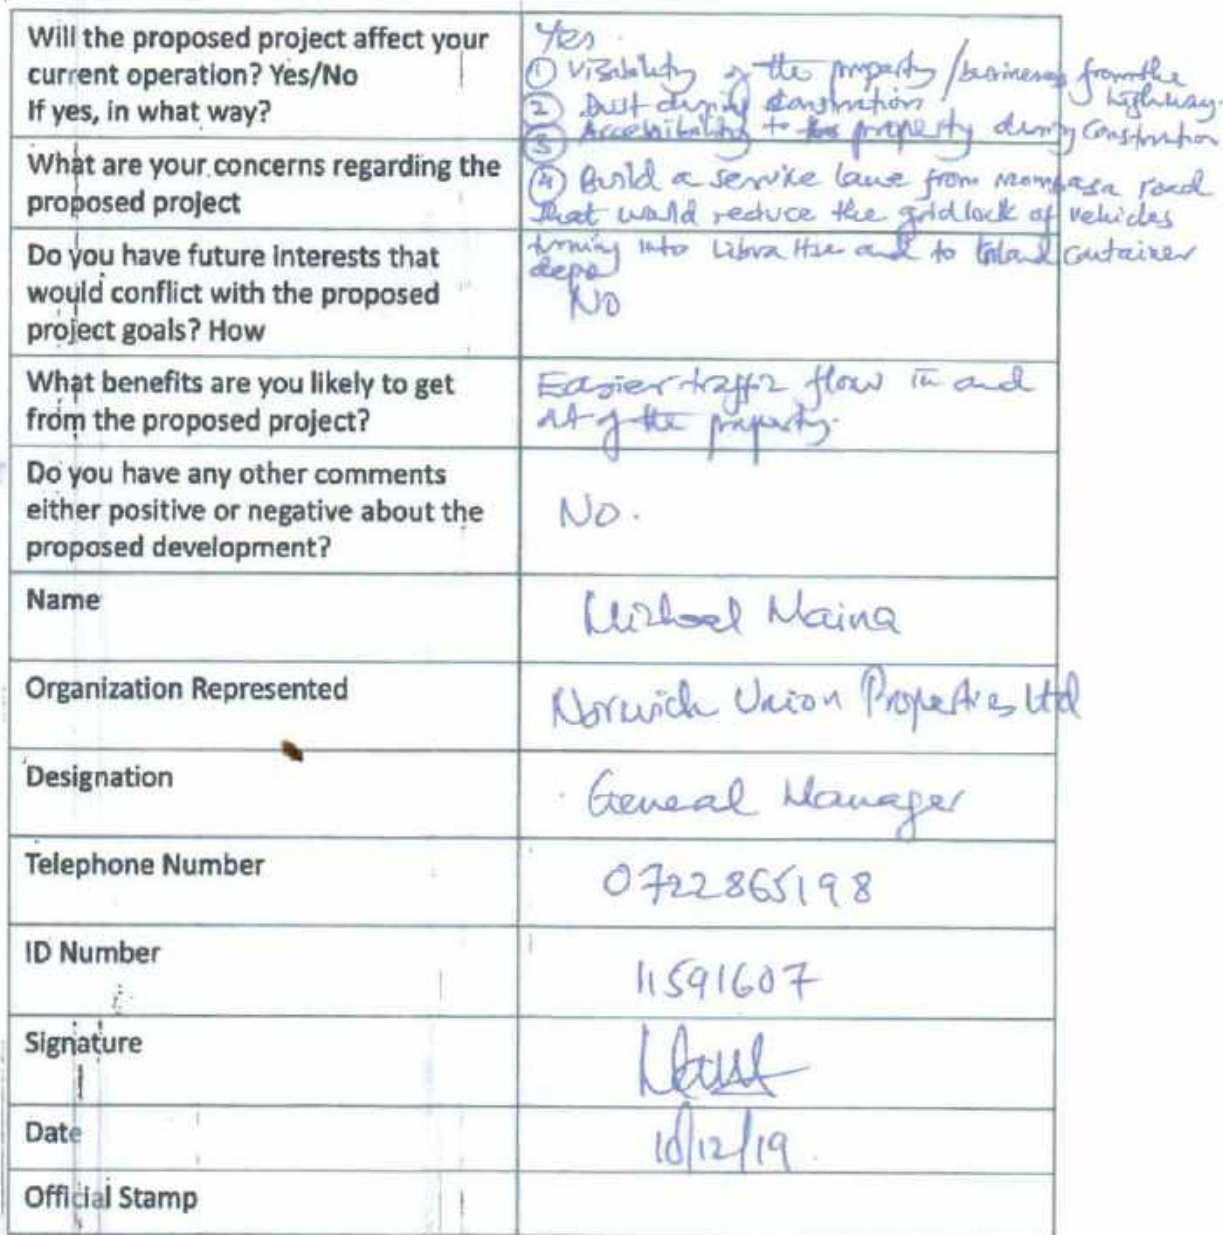 Will the proposed project affect your
current operation? Yes/No
If yes, in what way?
Yes.
① Visability of the property / business from the
highway.
② Dust during construction
③ Accessibility to property during Construction
What are your concerns regarding the
proposed project
④ Build a service lane from Mombasa road
that would reduce the gridlock of vehicles
turning into Libra Hse and to Inland Container
depo
Do you have future interests that
would conflict with the proposed
project goals? How
No
What benefits are you likely to get
from the proposed project?
Easier traffic flow in and
out of the property.
Do you have any other comments
either positive or negative about the
proposed development?
No.
Name
Michael Maina
Organization Represented
Norwich Union Properties Ltd
Designation
General Manager
Telephone Number
0722865198
ID Number
11591607
Signature
Date
10/12/19
Official Stamp